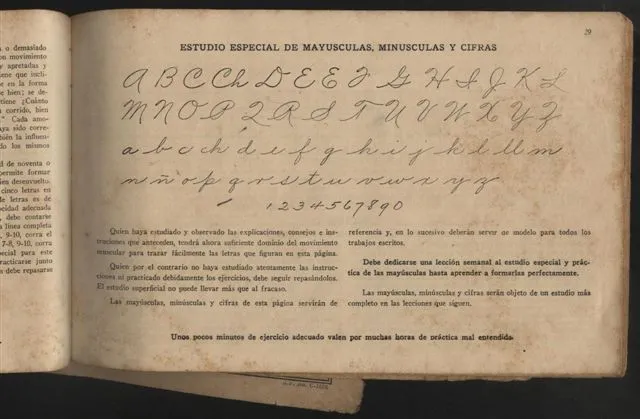 29
ESTUDIO ESPECIAL DE MAYUSCULAS, MINUSCULAS Y CIFRAS
A B C Ch D E E F G H I J K L
M N O P Q R S T U V W X Y Z
a b c ch d e f g h i j k l ll m
n ñ o p q r s t u v w x y z
1 2 3 4 5 6 7 8 9 0
Quien haya estudiado y observado las explicaciones, consejos e ins-
trucciones que anteceden, tendrá ahora suficiente dominio del movimiento
muscular para trazar fácilmente las letras que figuran en esta página.
Quien por el contrario no haya estudiado atentamente las instruc-
ciones ni practicado debidamente los ejercicios, debe seguir repasándolos.
El estudio superficial no puede llevar más que al fracaso.
Las mayúsculas, minúsculas y cifras de esta página servirán de
referencia y, en lo sucesivo deberán servir de modelo para todos los
trabajos escritos.
Debe dedicarse una lección semanal al estudio especial y prác-
tica de las mayúsculas hasta aprender a formarlas perfectamente.
Las mayúsculas, minúsculas y cifras serán objeto de un estudio más
completo en las lecciones que siguen.
Unos pocos minutos de ejercicio adecuado valen por muchas horas de práctica mal entendida.
o demasiado
movimiento
apretadas y
que incli-
en la forma
bien; se de-
¿Cuánto
corrido, bien
Cada amo-
sido corre-
la influen-
los mismos
de noventa o
permite formar
bien desenvuelto.
cinco letras en
de letras es de
velocidad adecuada
debe contarse
línea completa
9-10, corra el
7-8, 9-10, corra
especial para este
practicarse junto
debe repasarlas